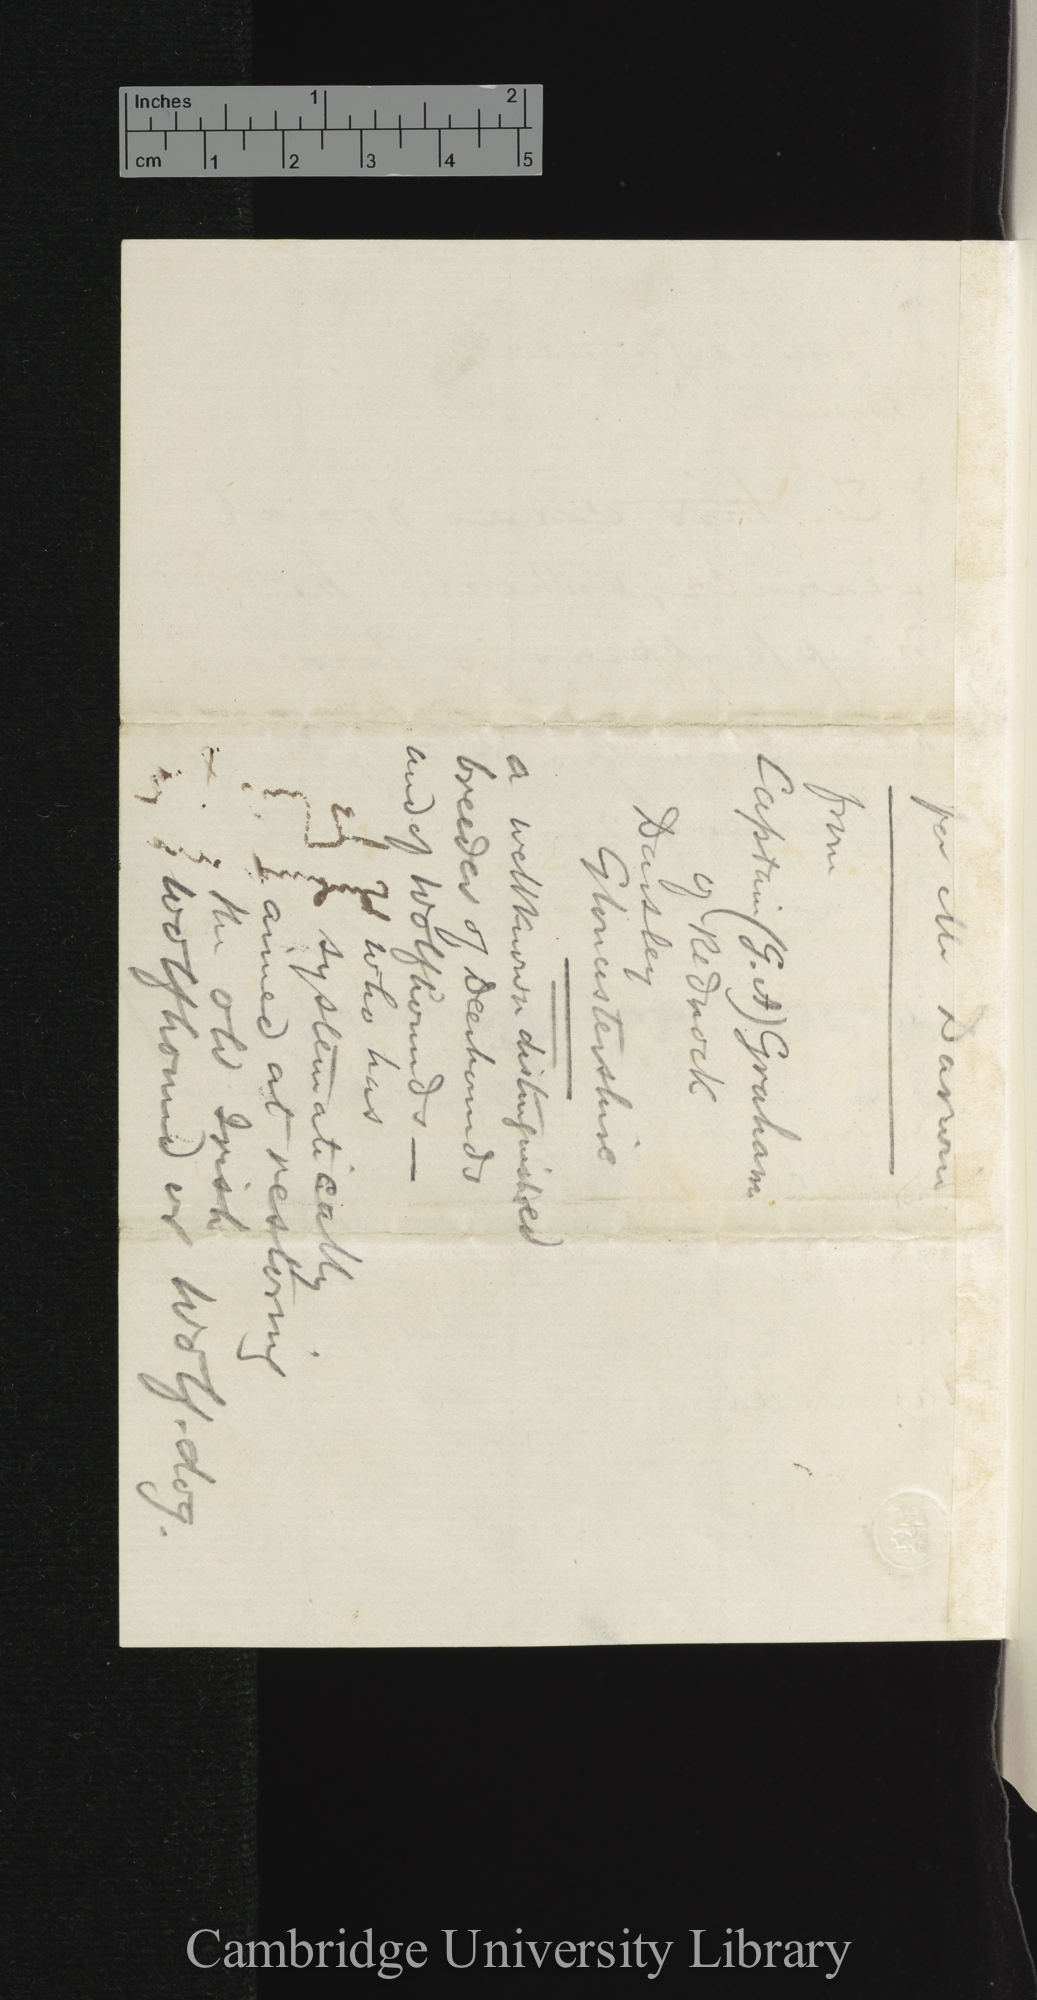 Inches 1 2
cm 1 2 3 4 5
for Mr Darwin
from
Captain (G. A) Graham
of Rednock
Dursley
Gloucestershire
a well known distinguished
breeder of Deerhounds
and of Wolfhounds —
who has
systematically
aimed at restoring
the old Irish
Wolfhound or Wolf-dog.
Cambridge University Library